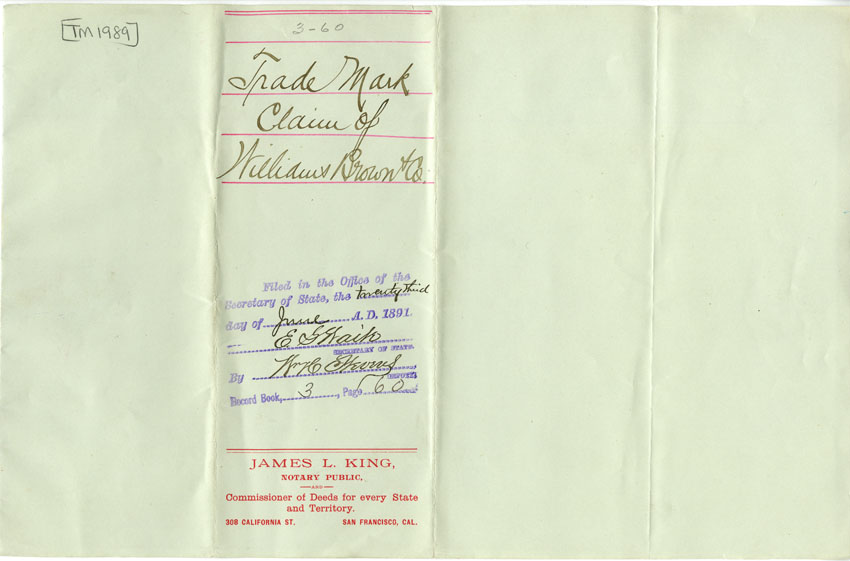 [TM1989]
3-60
Trade Mark
Claim of
Williams Brown & Co.
Filed in the Office of the
Secretary of State, the twenty third
day of June A.D. 1891
E G Waite
SECRETARY OF STATE.
By Wm H C Stevens,
DEPUTY.
Record Book, 3, Page 60
JAMES L. KING,
NOTARY PUBLIC,
AND
Commissioner of Deeds for every State
and Territory.
308 CALIFORNIA ST. SAN FRANCISCO, CAL.